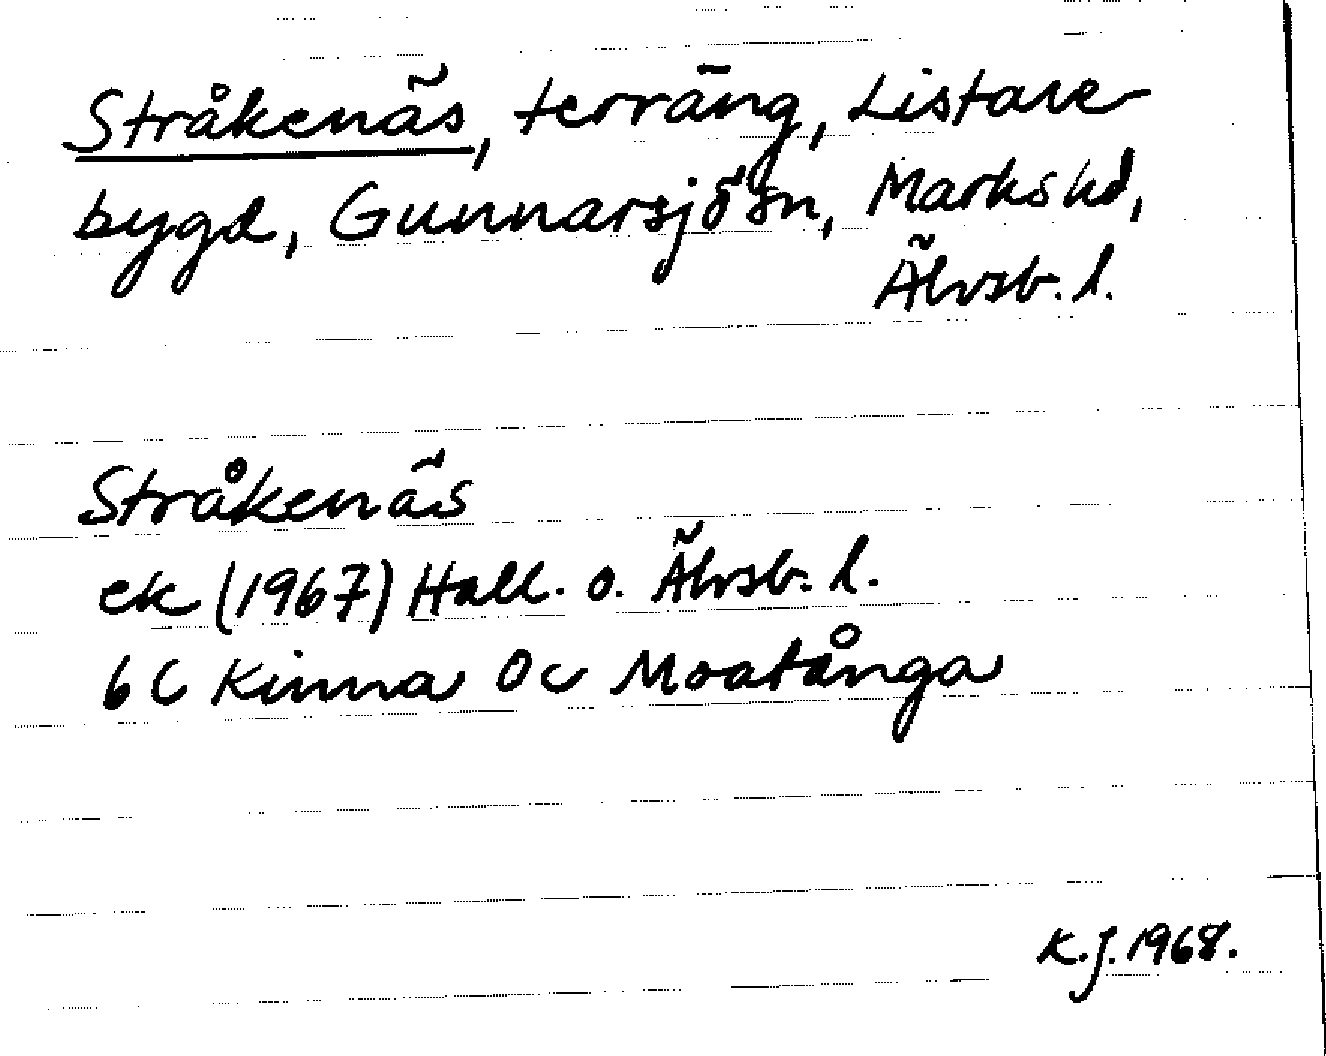 Stråkenäs, terräng, Listare
bygd, Gunnarsjö sn, Marks hd,
Älvsb. l.
Stråkenäs
ek (1967) Hall. o. Älvsb. l.
6C Kinna 0c Moatånga
K.J. 1968.